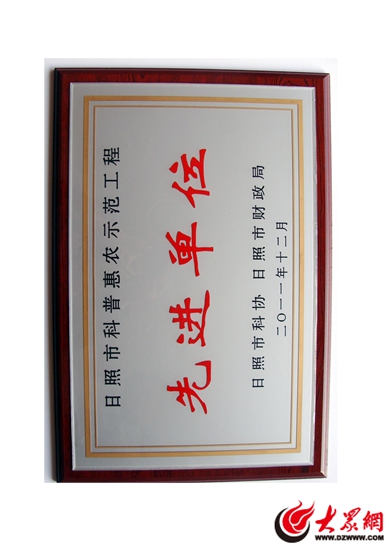 日照市科普惠农示范工程
先进单位
日照市科协 日照市财政局
二〇一一年十二月
大眾網
WWW.DZWWW.COM